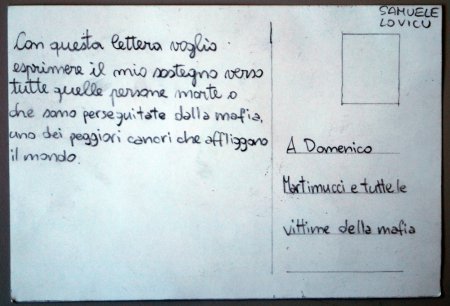 SAMUELE
LOVICU
Con questa lettera voglio
esprimere il mio sostegno verso
tutte quelle persone morte o
che sono perseguitate dalla mafia,
uno dei peggiori cancri che affliggono
il mondo.
A Domenico
Martimucci e tutte le
vittime della mafia